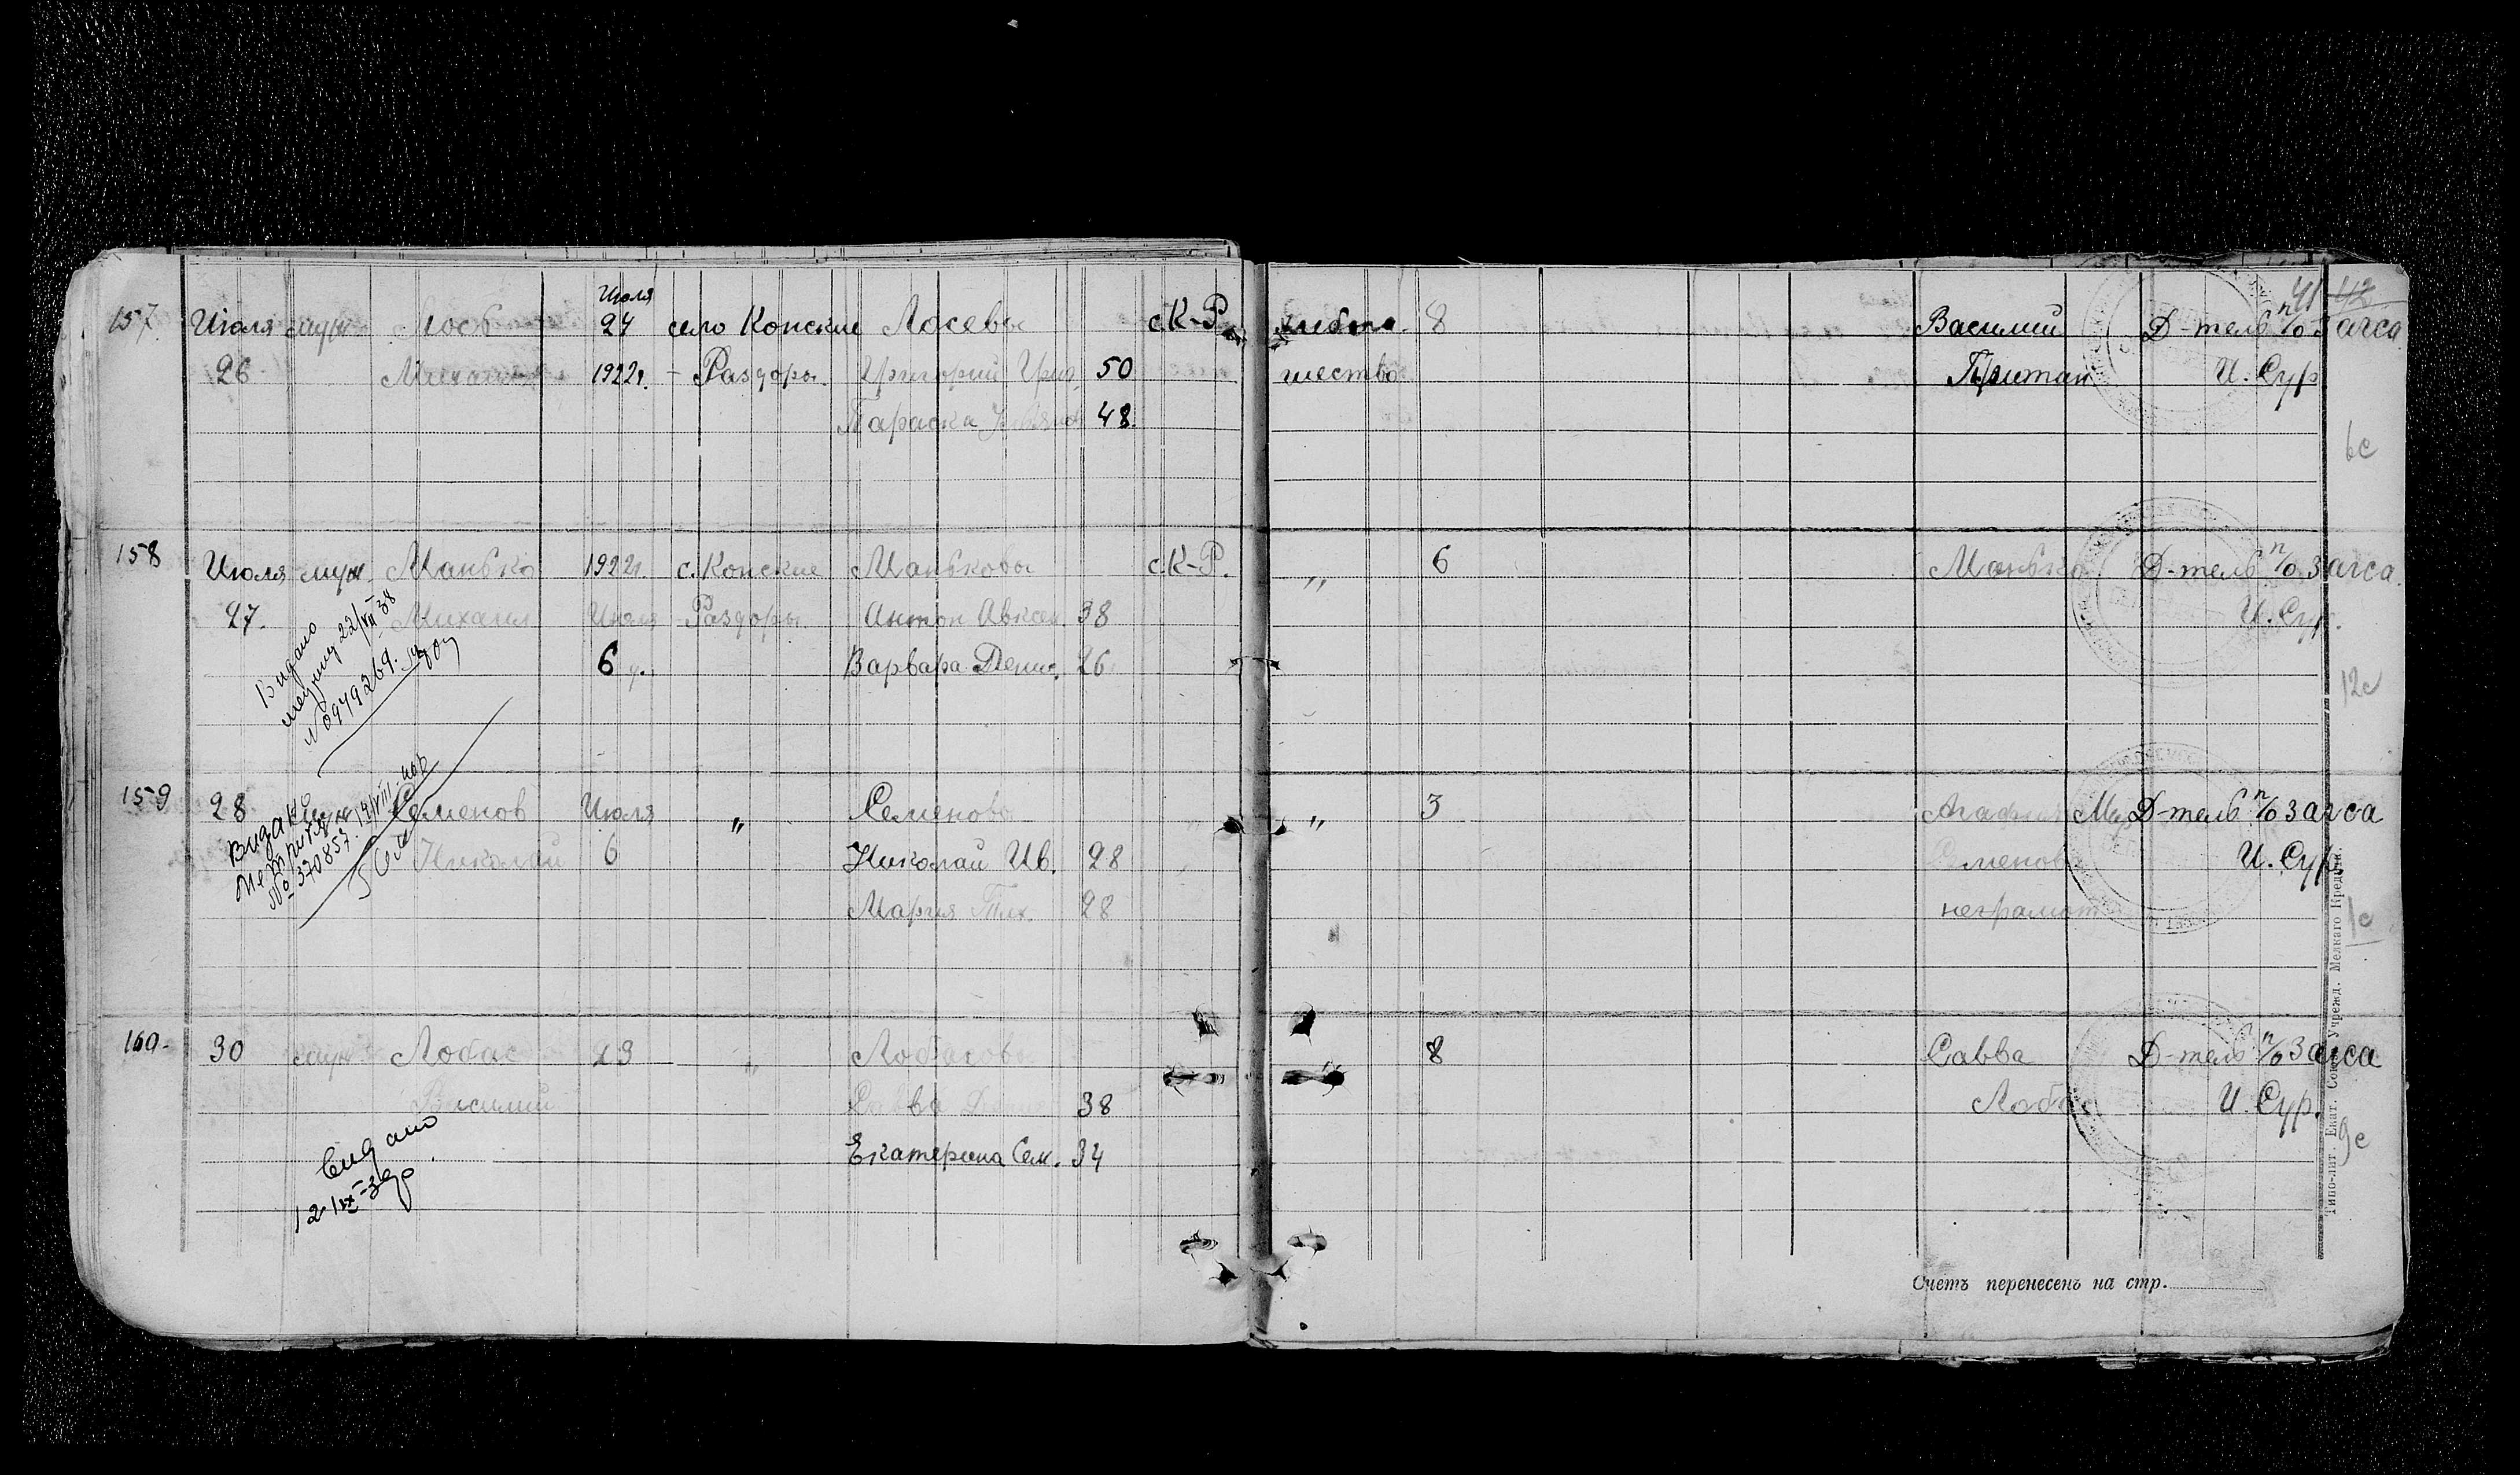 41 42
157. Июля муж. Лось Июля 24 село Конские Лосевы с. К-Р. хлебопа- 8 Василий Д-тель п/о Загса
26 Михаил 1922г. - Раздоры. Григорий Григ. 50 шество Притан И. Сур
Параска 48.
6с
158 Июля муж. Манько 1922г. с. Конские Маньковы с. К-Р. „ 6 Манько Д-тель п/о Загса.
27. Михаил Июля Раздоры Антон Авксен. 38 И. Сур.
6 у. Варвара Денис. 26
Видано
22/VII-38
№ 0949269.
12с
159 28 Семенов Июля „ Семеновы „ 3 Д-тель п/о Загса
Николай 6 Николай Ив. 28 Семенова И. Сур.
Мария Тих. 28 неграмот
Видано
метрики
№ 370857. 14/VIII
1с
160. 30 муж Лобас 23 „ Лобасовы „ 8 Савва Д-тель п/о Загса
Василий Савва 38 Лобас И. Сур.
Екатерина Сем. 34
9с
Видано
12/IX-39р.
Типо-лит. Екат. Союза Учрежд. Мелкаго Кредита.
Счетъ перенесенъ на стр.